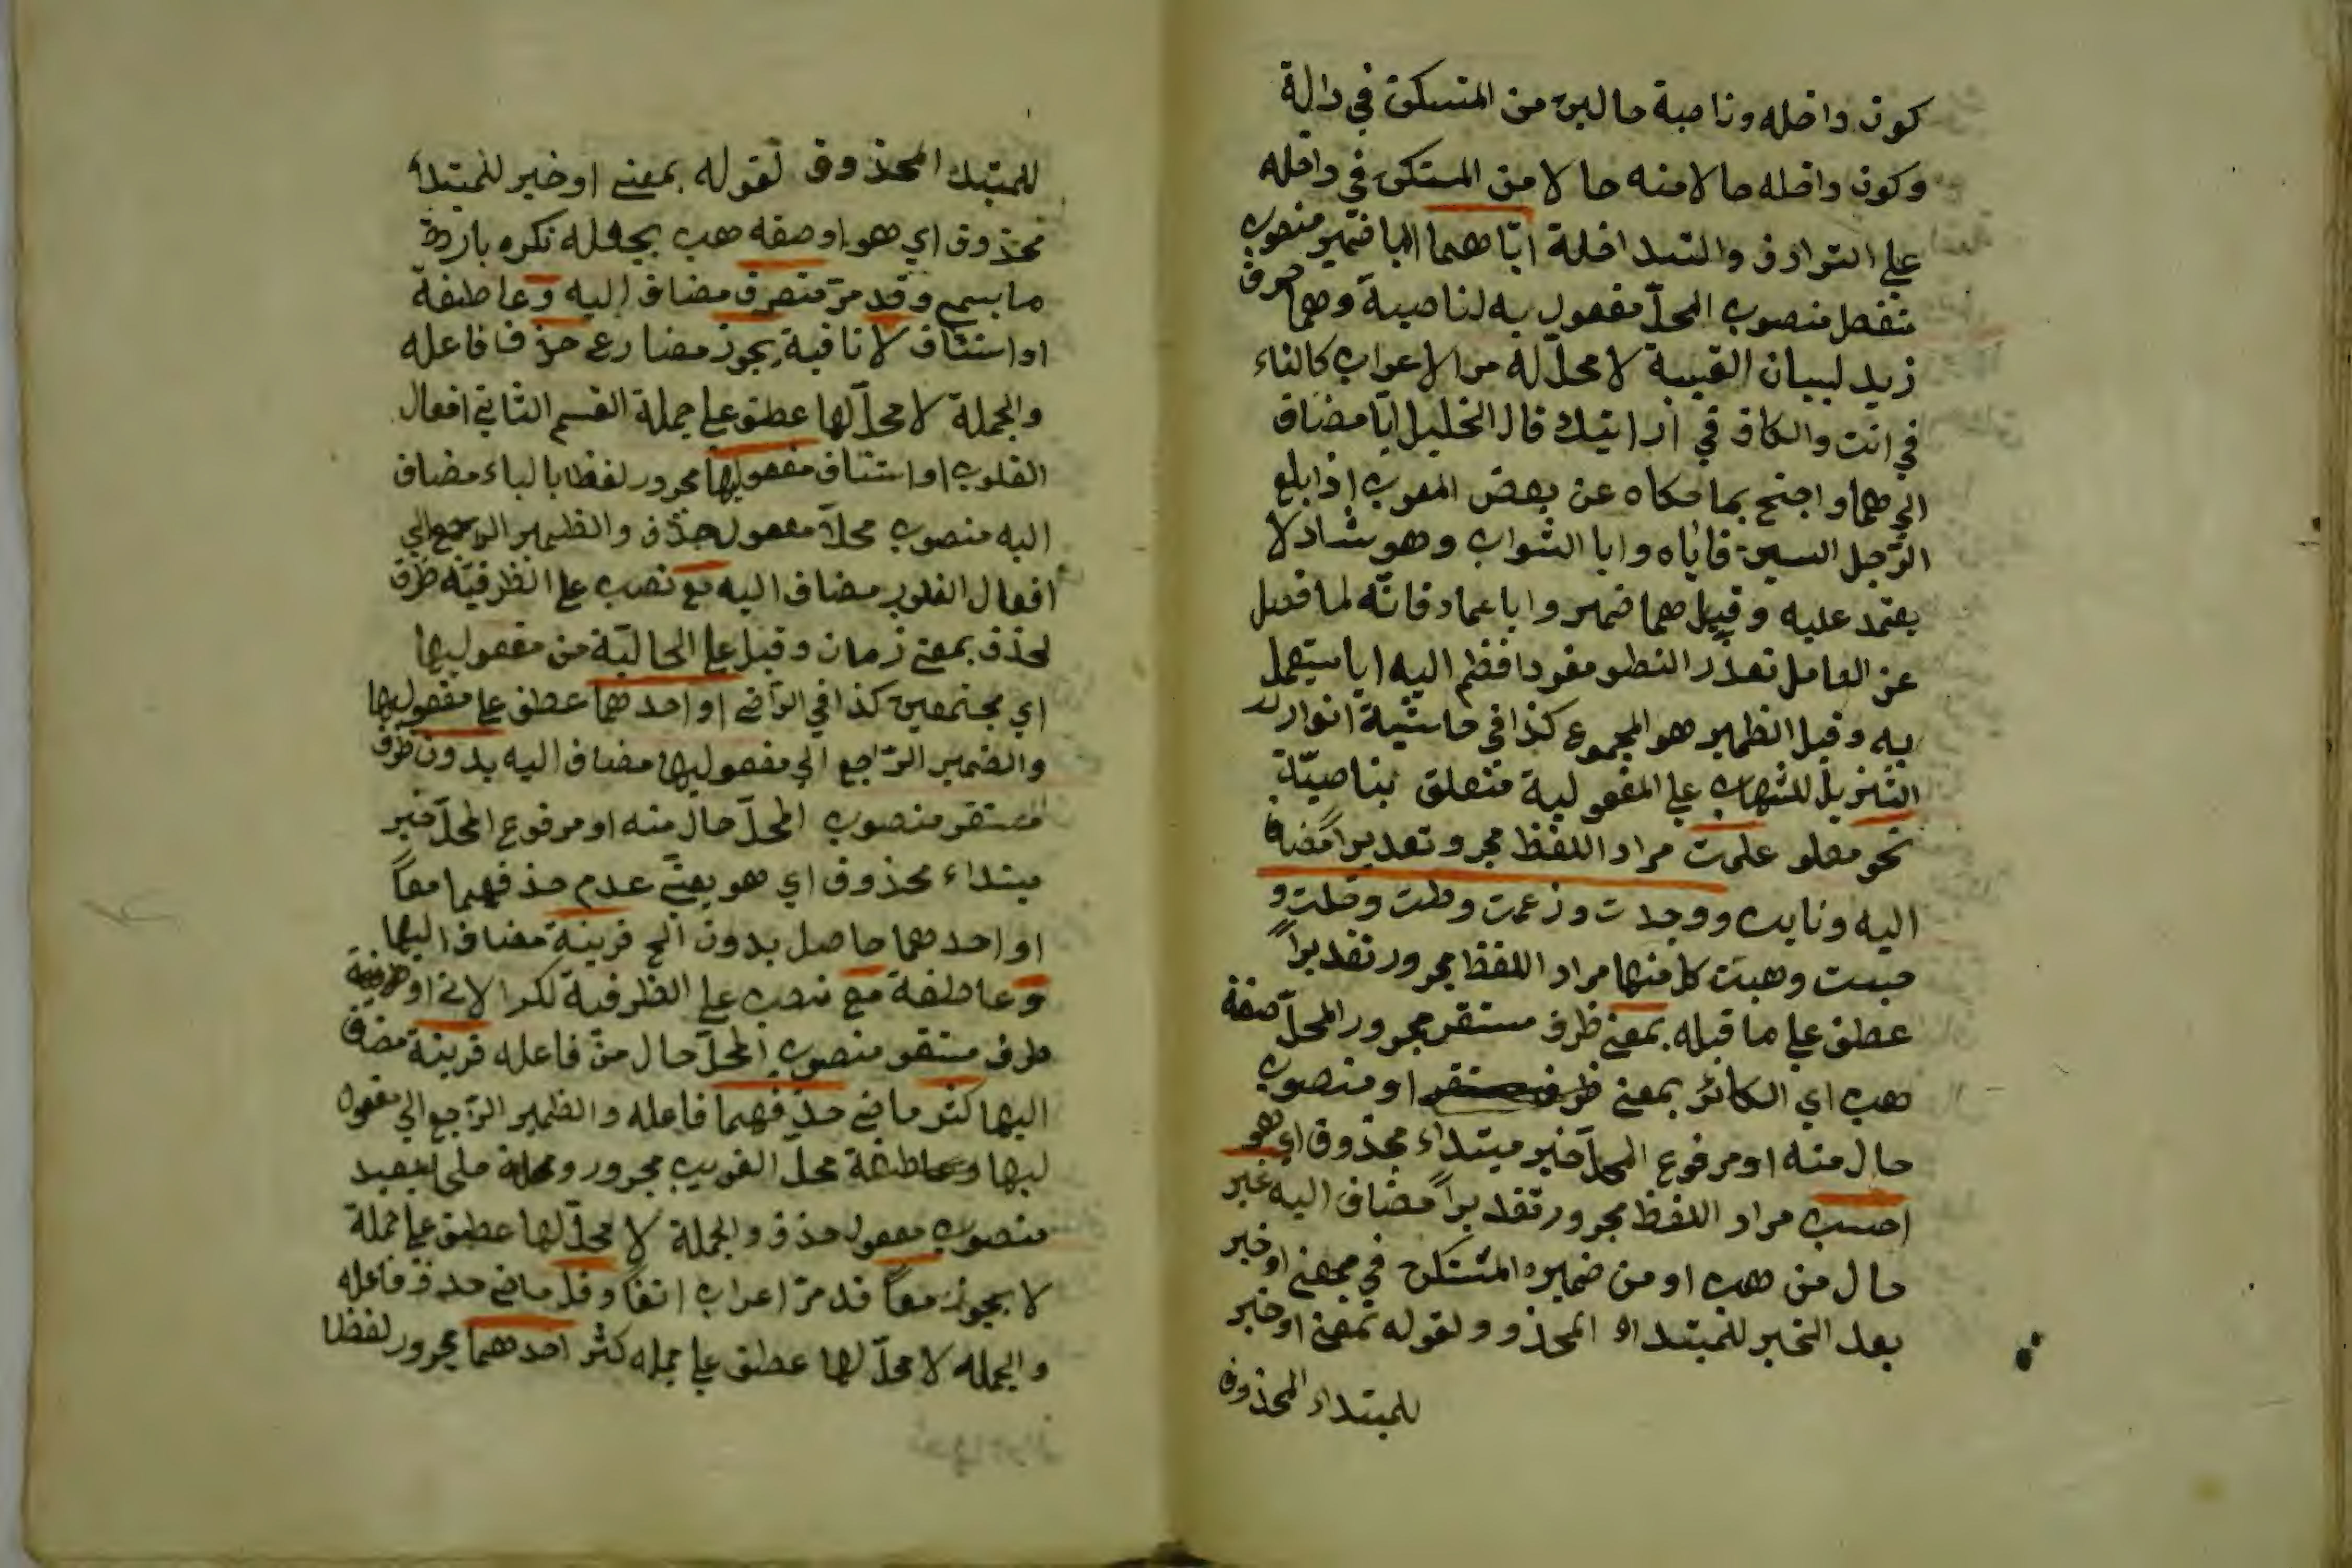 كون داخله وناصبة حالين من المستكن في دالة
وكون داخله حالا منه حالا من المستكن في داخله
على الترادف والتداخلة اياهما ايا ضمير منصوب
منفصل منصوب المحل مفعول به لناصبة وهما حرف
زيد لبيان الغيبة لا محل له من الاعراب كالتاء
في انت والكاف في ارايتك قال الخليل ايا مضاف
الى هما واحتج بما حكاه عن بعض العرب اذا بلغ
الرجل الستين فاياه وايا الشواب وهو شاذ لا
يعتمد عليه وقيل هما ضمير وايا عماد فانه لما فصل
عن العامل تعذر النطق مفردا فظم اليه ايا ليستعمل
به وقيل الظمير هو المجموع كذا في حاشية انوار
التنزيل للشهاب على المفعولية متعلق بناصبة
نحو معلو علمت مراد اللفظ مجرو تقديراً مضاف
اليه ورايت ووجدت وزعمت وظنت وخلت و
حسبت وهبت كل منها مراد اللفظ مجرور تقديراً
عطف على ما قبله بمعنى ظرف مستقر مجرور المحل صفة
هب اي الكائن بمعنى او منصوب
حال منه او مرفوع المحل خبر مبتداء محذوف اي هو
احسب مراد اللفظ مجرور تقديراً مضاف اليه غير
حال من هب او من ضميره المستكن في بمعنى او خبر
بعد الخبر للمبتداء المحذو ولقوله بمعنى او خبر
للمبتداء المحذوف
للمبتداء المحذوف لقوله بمعنى او خبر للمبتداء
محذوف اي هو او صفه هب بجعله نكره باردة
ما بسم وقد مر منصرف مضاف اليه وعاطفة
او استئناف لا نافية يجوز مضارع حذف فاعله
والجملة لا محل لها عطف على جملة القسم الثاني افعال
القلوب او استئناف مفعوليها مجرور لفظا بالباء مضاف
اليه منصوب محلا مفعول حذف والظمير الراجع الى
افعال القلوب مضاف اليه مع نصب على الظرفية ظرف
لحذف بمعنى زمان وقيل على الحالية من مفعوليها
اي مجتمعين كذا في الرضى او احدهما عطف على مفعوليها
والضمير الراجع الى مفعوليها مضاف اليه بدون ظرف
مستقر منصوب المحل حال منه او مرفوع المحل خبر
مبتداء محذوف اي هو يعني عدم حذفهما معاً
او احدهما حاصل بدون الخ قرينة مضاف اليها
وعاطفة مع نصب على الظرفية لكثر الاتي او
ظرف مستقر منصوب المحل حال من فاعله قرينة مضاف
اليها كثر ماضي حذفهما فاعله والظمير الراجع الى مفعو
ليها وعاطفة محل القريب مجرور ومحله البعيد
منصوب مفعول حذف والجملة لا محل لها عطف على جملة
لا يجوز معاً قد مر اعراب انفا وقل ماضي حذف فاعله
والجمله لا محل لها عطف على جمله كثر احدهما مجرور لفظا